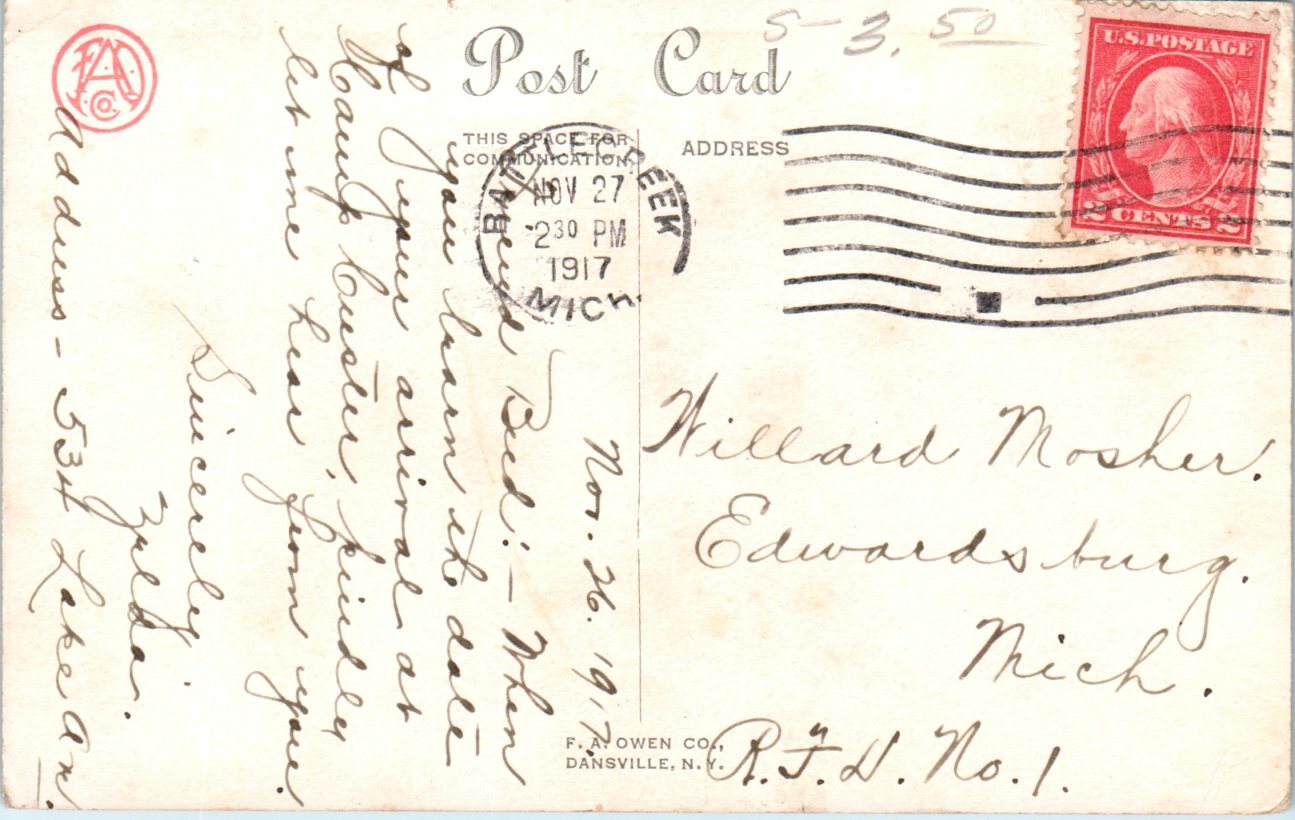 5-3.50
Post Card
U.S. POSTAGE
2 CENTS 2
FAO Co.
THIS SPACE FOR
COMMUNICATION.
ADDRESS
BATTLE CREEK
NOV 27
2 30 PM
1917
MICH.
Nov. 26. 1917.
Bud: - When
you learn the date
of your arrival at
Camp Custer, kindly
let me hear from you.
Sincerely,
Zelda.
Address - 534 Lake Av.
Willard Mosher.
Edwardsburg.
Mich.
R.F.D. No. 1.
F. A. OWEN CO.,
DANSVILLE, N.Y.